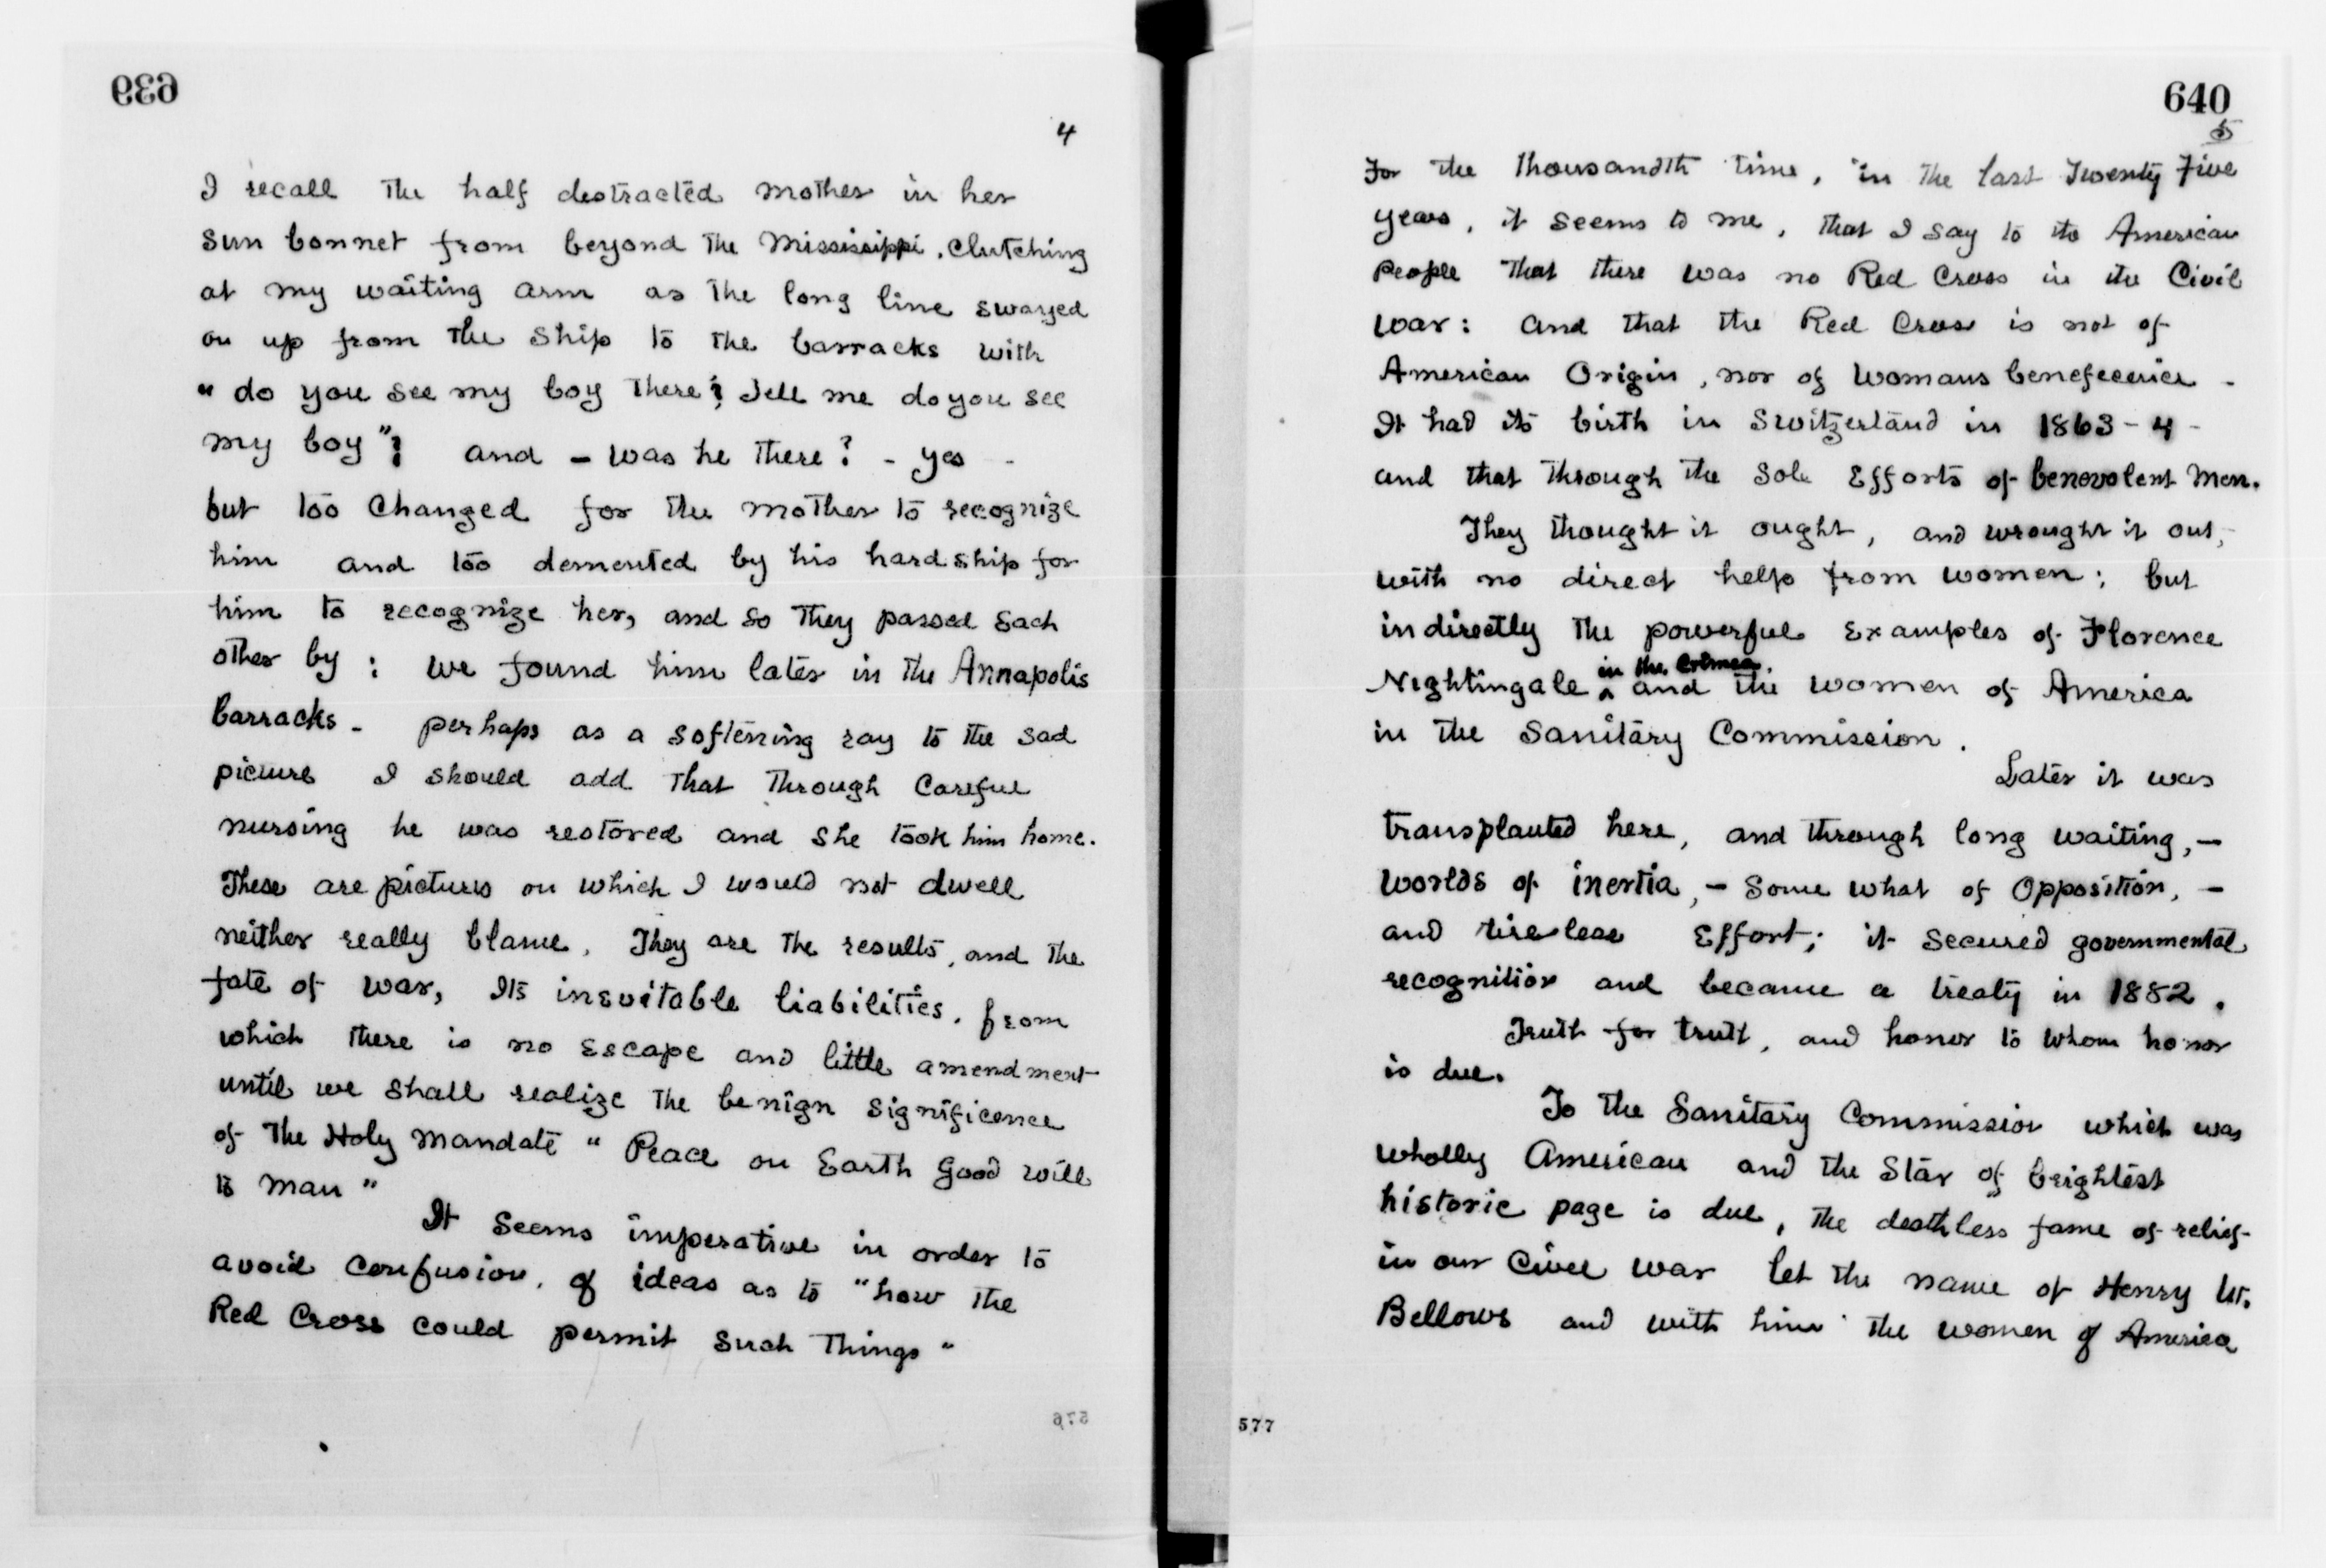 639
4
I recall the half destracted mother in her
sun bonnet from beyond the Mississippi, clutching
at my waiting arm as the long line swayed
on up from the ship to the barracks with
"do you see my boy there? Tell me do you see
my boy"? and – was he there? – yes –
but too changed for the mother to recognize
him and too demented by his hardship for
him to recognize her, and so they passed each
other by: we found him later in the Annapolis
barracks – perhaps as a softening ray to the sad
picture I should add that through careful
nursing he was restored and she took him home.
These are pictures on which I would not dwell
neither really blame. They are the results, and the
fate of war, Its inevitable liabilities, from
which there is no escape and little amendment
until we shall realize the benign significence
of the Holy mandate "Peace on Earth good will
to man"
It seems imperative in order to
avoid confusion, of ideas as to "how the
Red Cross could permit such things"
576
640
5
For the thousandth time, in the last Twenty Five
years, it seems to me, that I say to the American
people that there was no Red Cross in the Civil
war: and that the Red Cross is not of
American Origin, nor of womans –
It had its birth in Switzerland in 1863–4 –
and that through the sole Efforts of benevolent men.
They thought it ought, and wrought it out,
with no direct help from women; but
indirectly the powerful Examples of Florence
Nightingale in the Crimea, and the women of America
in the Sanitary Commission.
Later it was
transplanted here, and through long waiting, –
worlds of inertia, – some what of Opposition, –
and tireless Effort; it secured governmental
recognition and became a treaty in 1882.
Truth for truth, and honor to whom honor
is due.
To the Sanitary Commission which was
wholly American and the star of brightest
historic page is due, the deathless fame of relief
in our Civil war let the name of Henry W.
Bellows and with him the women of America
577